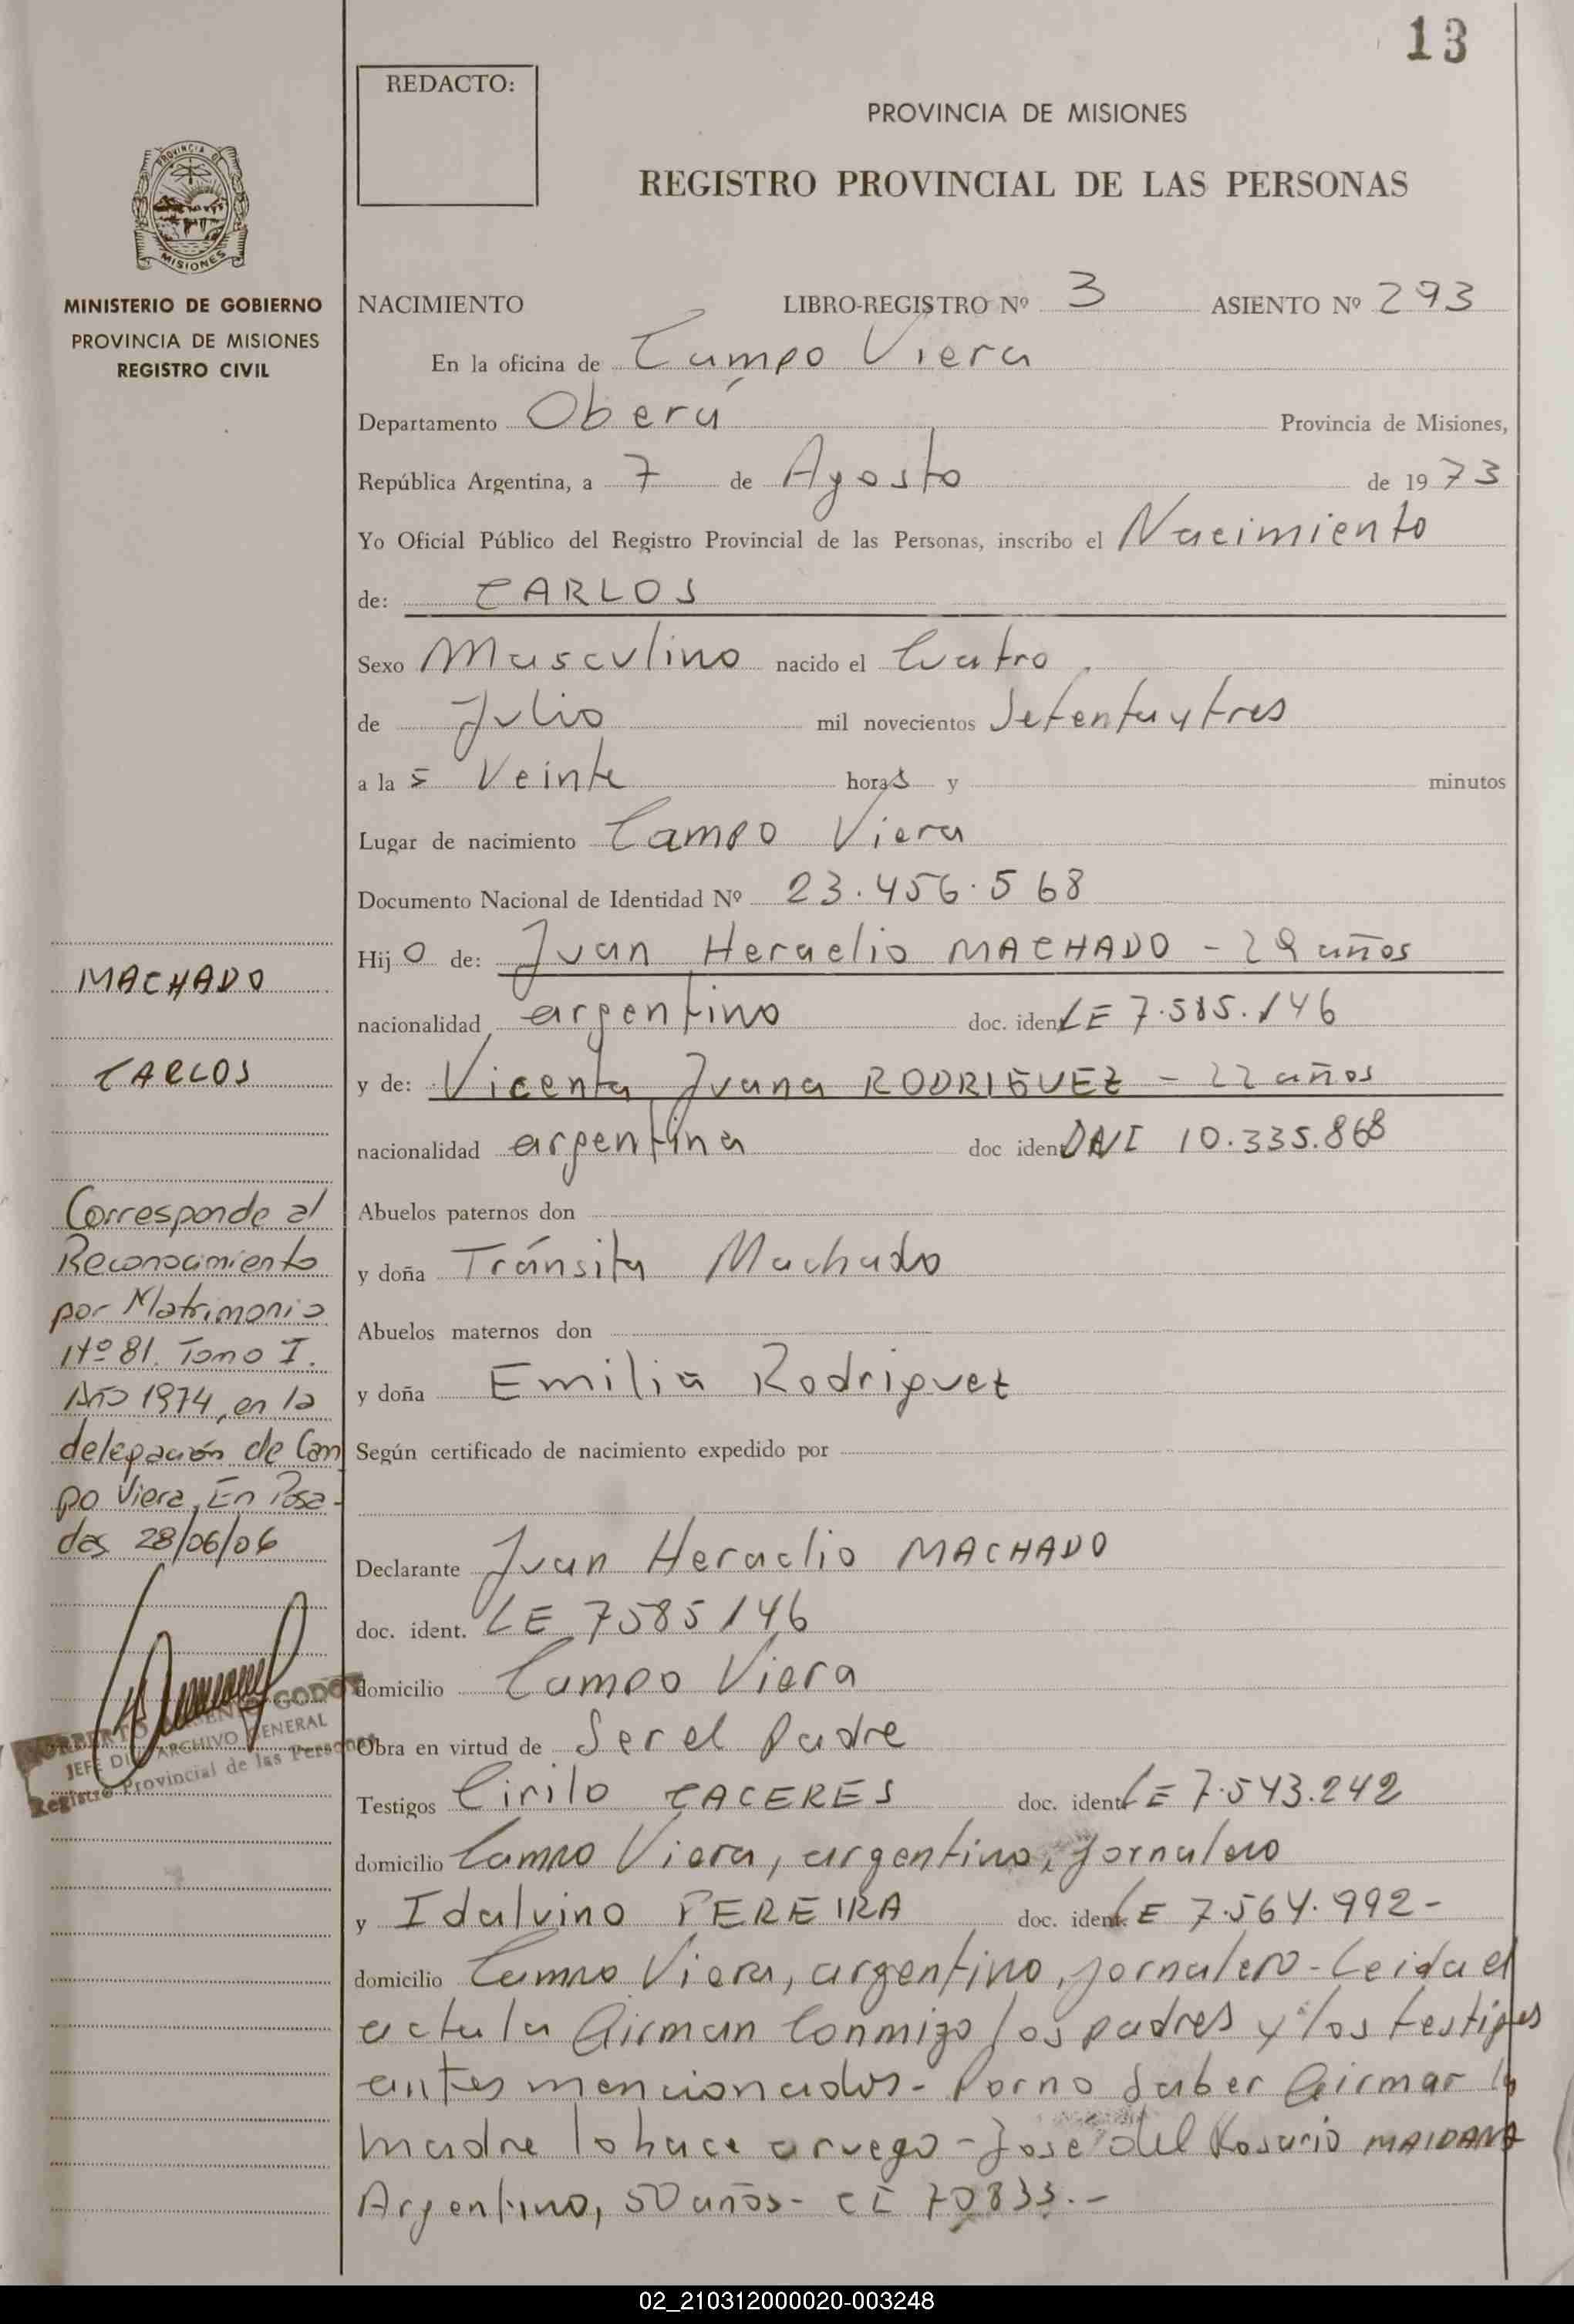 13
REDACTO:
PROVINCIA DE MISIONES
REGISTRO PROVINCIAL DE LAS PERSONAS
PROVINCIA DE
MISIONES
MINISTERIO DE GOBIERNO
PROVINCIA DE MISIONES
REGISTRO CIVIL
NACIMIENTO LIBRO-REGISTRO Nº 3 ASIENTO Nº 293
En la oficina de Campo Viera
Departamento Oberá Provincia de Misiones,
República Argentina, a 7 de Agosto de 1973
Yo Oficial Público del Registro Provincial de las Personas, inscribo el Nacimiento
de: CARLOS
Sexo Masculino nacido el Cuatro
de Julio mil novecientos Setentaytres
a las Veinte horas y minutos
Lugar de nacimiento Campo Viera
Documento Nacional de Identidad Nº 23.456.568
Hijo de: Juan Heraclio MACHADO - 29 años
nacionalidad argentino doc. ident LE 7.585.146
y de: Vicenta Juana RODRIGUEZ - 22 años
nacionalidad argentina doc ident DNI 10.335.868
Abuelos paternos don
y doña Tránsita Machado
Abuelos maternos don
y doña Emilia Rodriguez
Según certificado de nacimiento expedido por
Declarante Juan Heraclio MACHADO
doc. ident. LE 7585146
domicilio Campo Viera
Obra en virtud de Ser el Padre
Testigos Cirilo CACERES doc. ident LE 7.543.242
domicilio Campo Viera, argentino, jornalero
y Idalvino PEREIRA doc. ident. LE 7.564.992-
domicilio Campo Viera, argentino, jornalero - Leida el
acta la firman conmigo los padres y los testigos
antes mencionados - Porno saber firmar la
madre lo hace a ruego - José del Rosario MAIDANA
Argentino, 50 años - CI 70833.-
MACHADO
CARLOS
Corresponde al
Reconocimiento
por Matrimonio
Nº 81. Tomo I.
Año 1974, en la
delegación de Cam
po Viera, En Posa-
das 28/06/06
NORBERTO GODOY
JEFE ARCHIVO GENERAL
Registro Provincial de las Personas
02_210312000020-003248